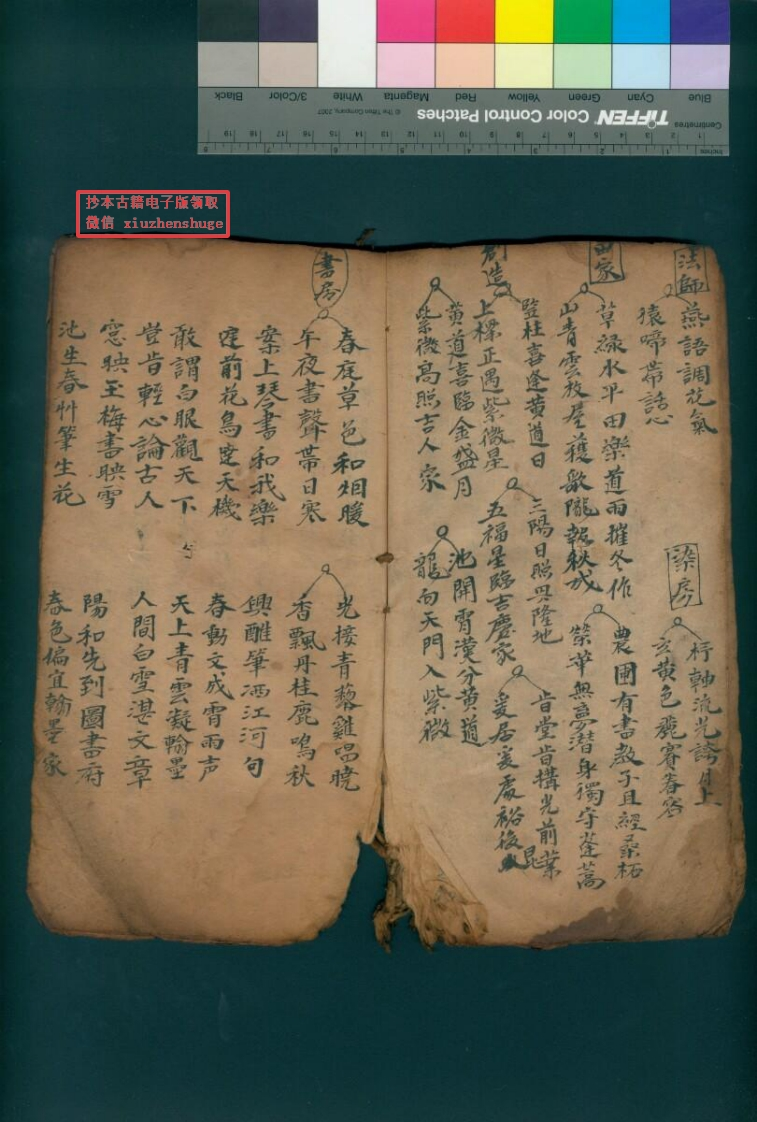 Blue
Cyan
Green
Yellow
Red
Magenta
White
3/Color
Black
TIFFEN Color Control Patches
© The Tiffen Company, 2007
Centimetres
Inches
抄本古籍电子版领取
微信 xiuzhenshuge
法師
燕語調花氣
猿啼帶話心
染房
杼軸流光誇月上
玄黄色麗賽春容
田家
草緑水平田樂道雨摧冬作
山青雲放屋獲歌隴報秋成
農圃有書教子且經桑柘
榮華無夢潜身獨守蓬蒿
創造
竪柱喜逢黄道日
上樑正遇紫微星
三陽日照興隆地
五福星臨吉慶家
肯堂肯搆光前業
爰居爰處裕後昆
黄道喜臨金盤月
紫微高照吉人家
池開霄漢分黄道
龍向天門入紫微
書房
春庭草色和烟暖
午夜書聲帶日寒
案上琴書和我樂
窓前花鳥定天機
敢謂白眼觀天下
豈肯輕心論古人
窓映玉梅書映雪
池生春艸筆生花
光接青藜雞唱曉
香飄丹桂鹿鳴秋
興酣筆洒江河句
春動文成霄雨声
天上青雲凝翰墨
人間白雪湛文章
陽和先到圖書府
春色偏宜翰墨家